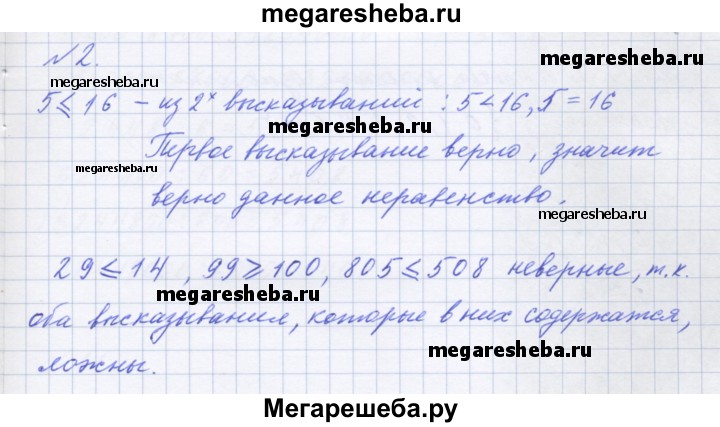 megaresheba.ru
№2.
megaresheba.ru
megaresheba.ru
5 ⩽ 16 – из 2х высказываний : 5 < 16, 5 = 16
megaresheba.ru
Первое высказывание верно, значит
megaresheba.ru
верно данное неравенство.
megaresheba.ru
29 ⩽ 14 , 99 ⩾ 100, 805 ⩽ 508 неверные, т.к.
megaresheba.ru
оба высказывания, которые в них содержатся,
megaresheba.ru
ложны.
Мегарешеба.ру